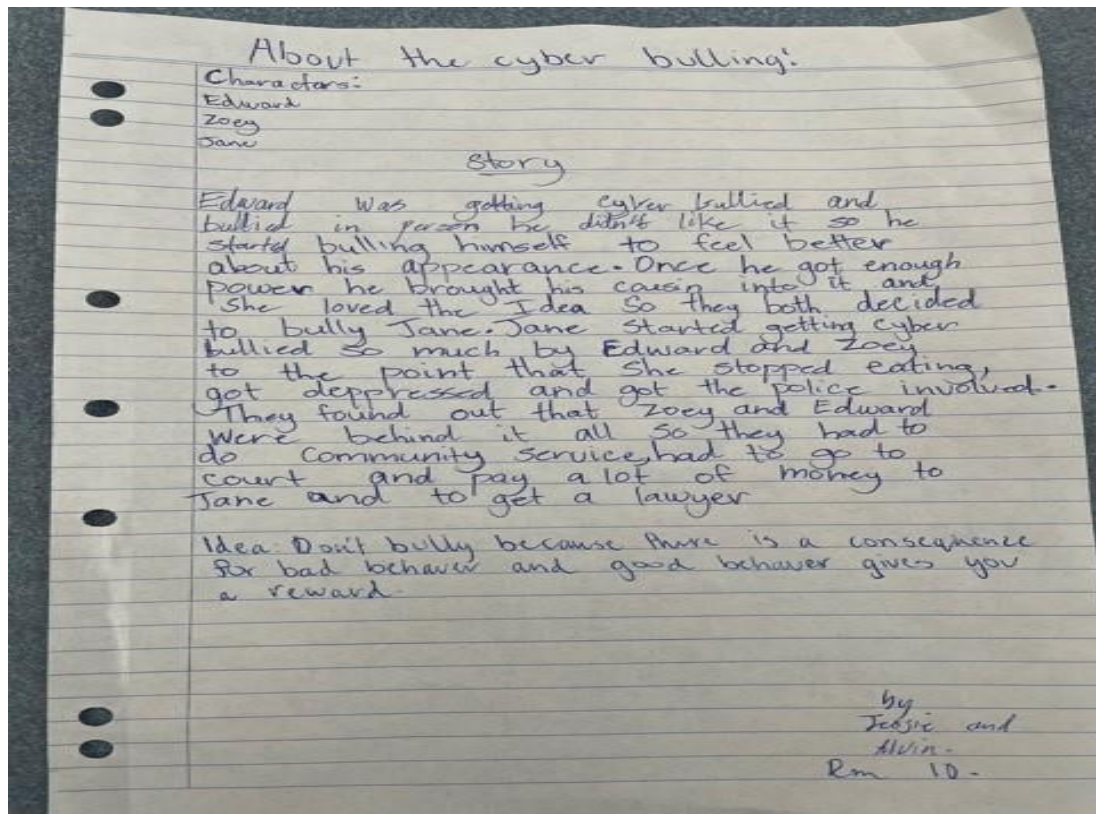 About the cyber bulling:
Charactars:
Edward
Zoey
Jane
Story
Edward was getting cyber bullied and
bullied in person he didn't like it so he
started bulling himself to feel better
about his appearance. Once he got enough
power he brought his causin into it and
She loved the Idea so they both decided
to bully Jane. Jane started getting cyber
bullied so much by Edward and Zoey
to the point that she stopped eating,
got deppressed and got the police involved.
They found out that Zoey and Edward
were behind it all so they had to
do community service, had to go to
court and pay a lot of money to
Jane and to get a lawyer
Idea: Don't bully because there is a consequence
for bad behaver and good behaver gives you
a reward.
by
and
Alvin.
Rm 10.